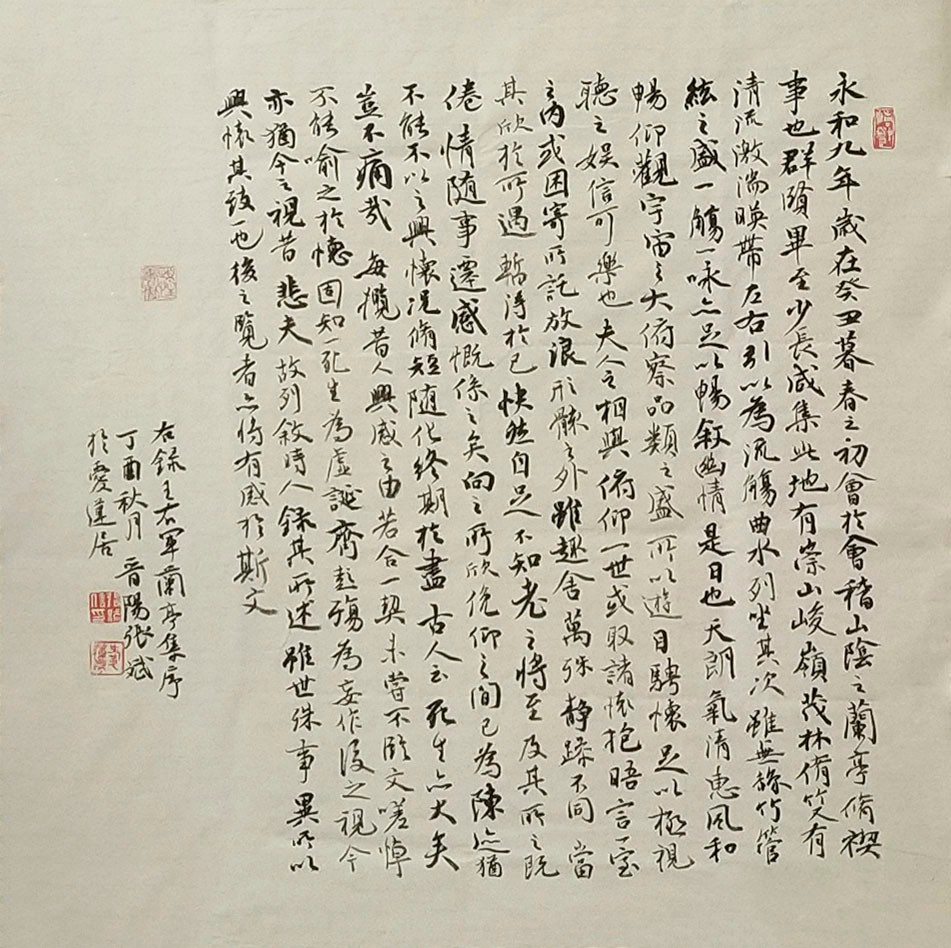 永和九年歲在癸丑暮春之初會於會稽山陰之蘭亭脩禊
事也群賢畢至少長咸集此地有崇山峻嶺茂林脩竹又有
清流激湍暎帶左右引以為流觴曲水列坐其次雖無絲竹管
絃之盛一觴一詠亦足以暢敘幽情是日也天朗氣清惠風和
暢仰觀宇宙之大俯察品類之盛所以遊目騁懷足以極視
聽之娛信可樂也夫人之相與俯仰一世或取諸懷抱晤言一室
之內或因寄所託放浪形骸之外雖趣舍萬殊静躁不同當
其欣於所遇暫得於己快然自足不知老之將至及其所之既
倦情随事遷感慨係之矣向之所欣俛仰之間已為陳迹猶
不能不以之興懷況脩短随化終期於盡古人云死生亦大矣
豈不痛哉每攬昔人興感之由若合一契未嘗不臨文嗟悼
不能喻之於懷固知一死生為虛誕齊彭殤為妄作後之視今
亦猶今之視昔悲夫故列敘時人錄其所述雖世殊事異所以
興懷其致一也後之覽者亦將有感於斯文
右錄王右軍蘭亭集序
丁酉秋月晋陽張斌
於愛蓮居